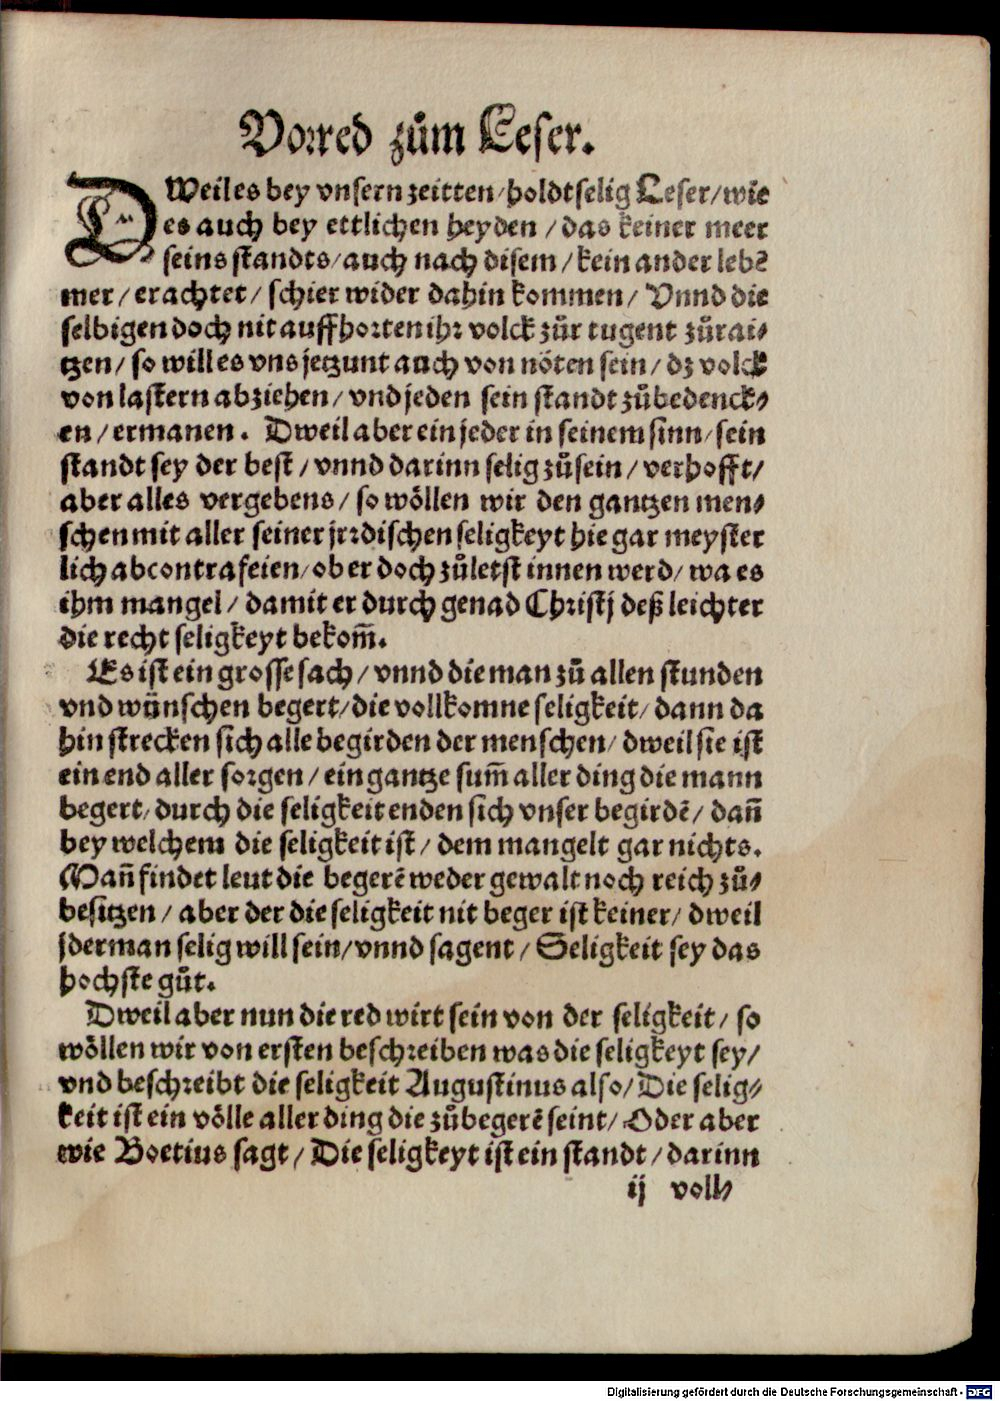 Vorred zům Leser.
DWeil es bey vnsern zeitten / holdtselig Leser / wie
es auch bey ettlichen heyden / das keiner meer
seins standts / auch nach disem / kein ander lebē
mer / erachtet / schier wider dahin kommen / Vnnd die
selbigen doch nit auffhorten ihr volck zůr tugent zůrai⸗
tzen / so will es vns jetzunt auch von nöten sein / dz volck
von lastern abziehen / vnd jeden sein standt zůbedenck⸗
en / ermanen. Dweil aber ein jeder in seinem sinn / sein
standt sey der best / vnnd darinn selig zůsein / verhofft /
aber alles vergebens / so wöllen wir den gantzen men⸗
schen mit aller seiner jrrdischen seligkeyt hie gar meyster
lich abcontrafeien / ob er doch zůletst innen werd / wa es
ihm mangel / damit er durch genad Christj deß leichter
die recht seligkeyt bekom̄.
Es ist ein grosse sach / vnnd die man zů allen stunden
vnd wünschen begert / die vollkomne seligkeit / dann da
hin strecken sich alle begirden der menschen / dweil sie ist
ein end aller sorgen / ein gantze sum̄ aller ding die mann
begert / durch die seligkeit enden sich vnser begirdē / dan̄
bey welchem die seligkeit ist / dem mangelt gar nichts.
Man̄ findet leut die begerē weder gewalt noch reich zů⸗
besitzen / aber der die seligkeit nit beger ist keiner / dweil
jderman selig will sein / vnnd sagent / Seligkeit sey das
hochste gůt.
Dweil aber nun die red wirt sein von der seligkeit / so
wöllen wir von ersten beschreiben was die seligkeyt sey /
vnd beschreibt die seligkeit Augustinus also / Die selig⸗
keit ist ein völle aller ding die zůbegerē seint / Oder aber
wie Boetius sagt / Die seligkeyt ist ein standt / darinn
ij voll⸗
Digitalisierung gefördert durch die Deutsche Forschungsgemeinschaft - DFG